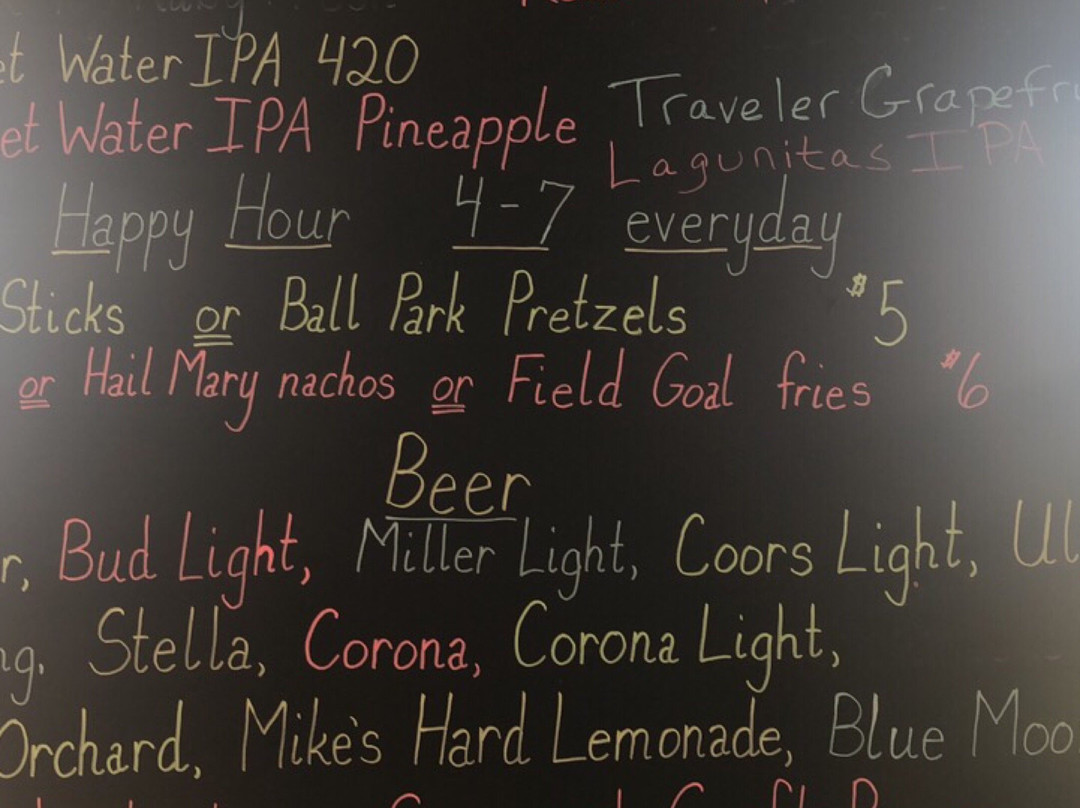 et Water IPA 420
et Water IPA Pineapple
Traveler Grapefru
Lagunitas IPA
Happy Hour 4-7 everyday
Sticks or Ball Park Pretzels $5
or Hail Mary nachos or Field Goal fries $6
Beer
r, Bud Light, Miller Light, Coors Light, Ul
ng, Stella, Corona, Corona Light,
Orchard, Mike's Hard Lemonade, Blue Moo